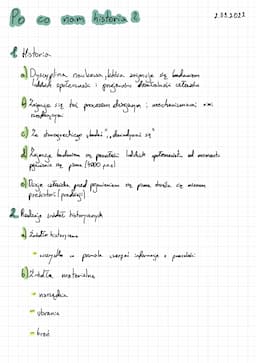 Po co nam historia?
2.09.2022
1. Historia
a) Dyscyplina naukowa, która zajmuje się badaniem
ludzkich społeczności i przejawów działalności człowieka
b) Zajmuje się też procesem dziejowym i mechanizmami nim
c) Ze starogreckiego "badać", "dowiadywać się"
d) Zajmuje badaniem się przeszłości ludzkich społeczeństw od momentu
pojawienia się pisma (4000 p.n.e)
e) Dzieje człowieka przed pojawieniem się pisma określa się mianem
prehistorii (pradziejów)
2. Rodzaje źródeł historycznych
a) Źródło historyczne
wszystko co pozwala czerpać informacje o przeszłości
b) Źródła materialne
narzędzia
ubrania
broń